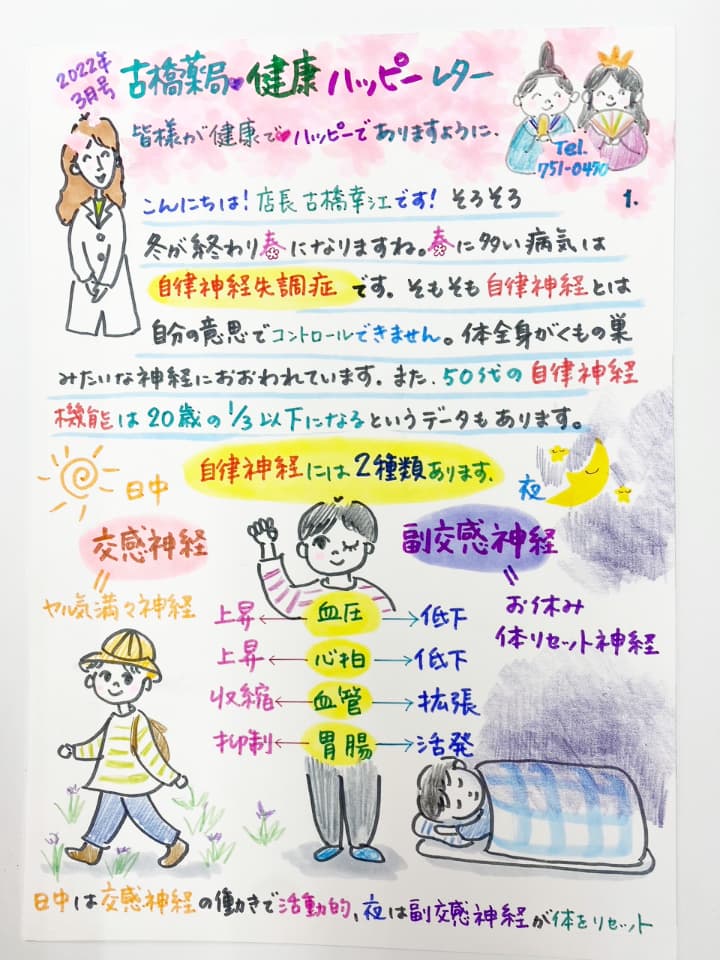 2022年
3月号
古橋薬局 健康 ハッピー レター
皆様が健康でハッピーでありますように.
Tel.
751-0450
1.
こんにちは!店長 古橋幸江です!そろそろ
冬が終わり春になりますね。春に多い病気は
自律神経失調症です.そもそも自律神経とは
自分の意思でコントロールできません。体全身がくもの巣
みたいな神経におおわれています.また.50代の自律神経
機能は20歳の1/3以下になるというデータもあります。
自律神経には2種類あります.
日中
夜
交感神経
副交感神経
=
=
ヤル気満々神経
お休み
体リセット神経
上昇←血圧→低下
上昇←心拍→低下
収縮←血管→拡張
抑制←胃腸→活発
日中は交感神経の働きで活動的、夜は副交感神経が体をリセット